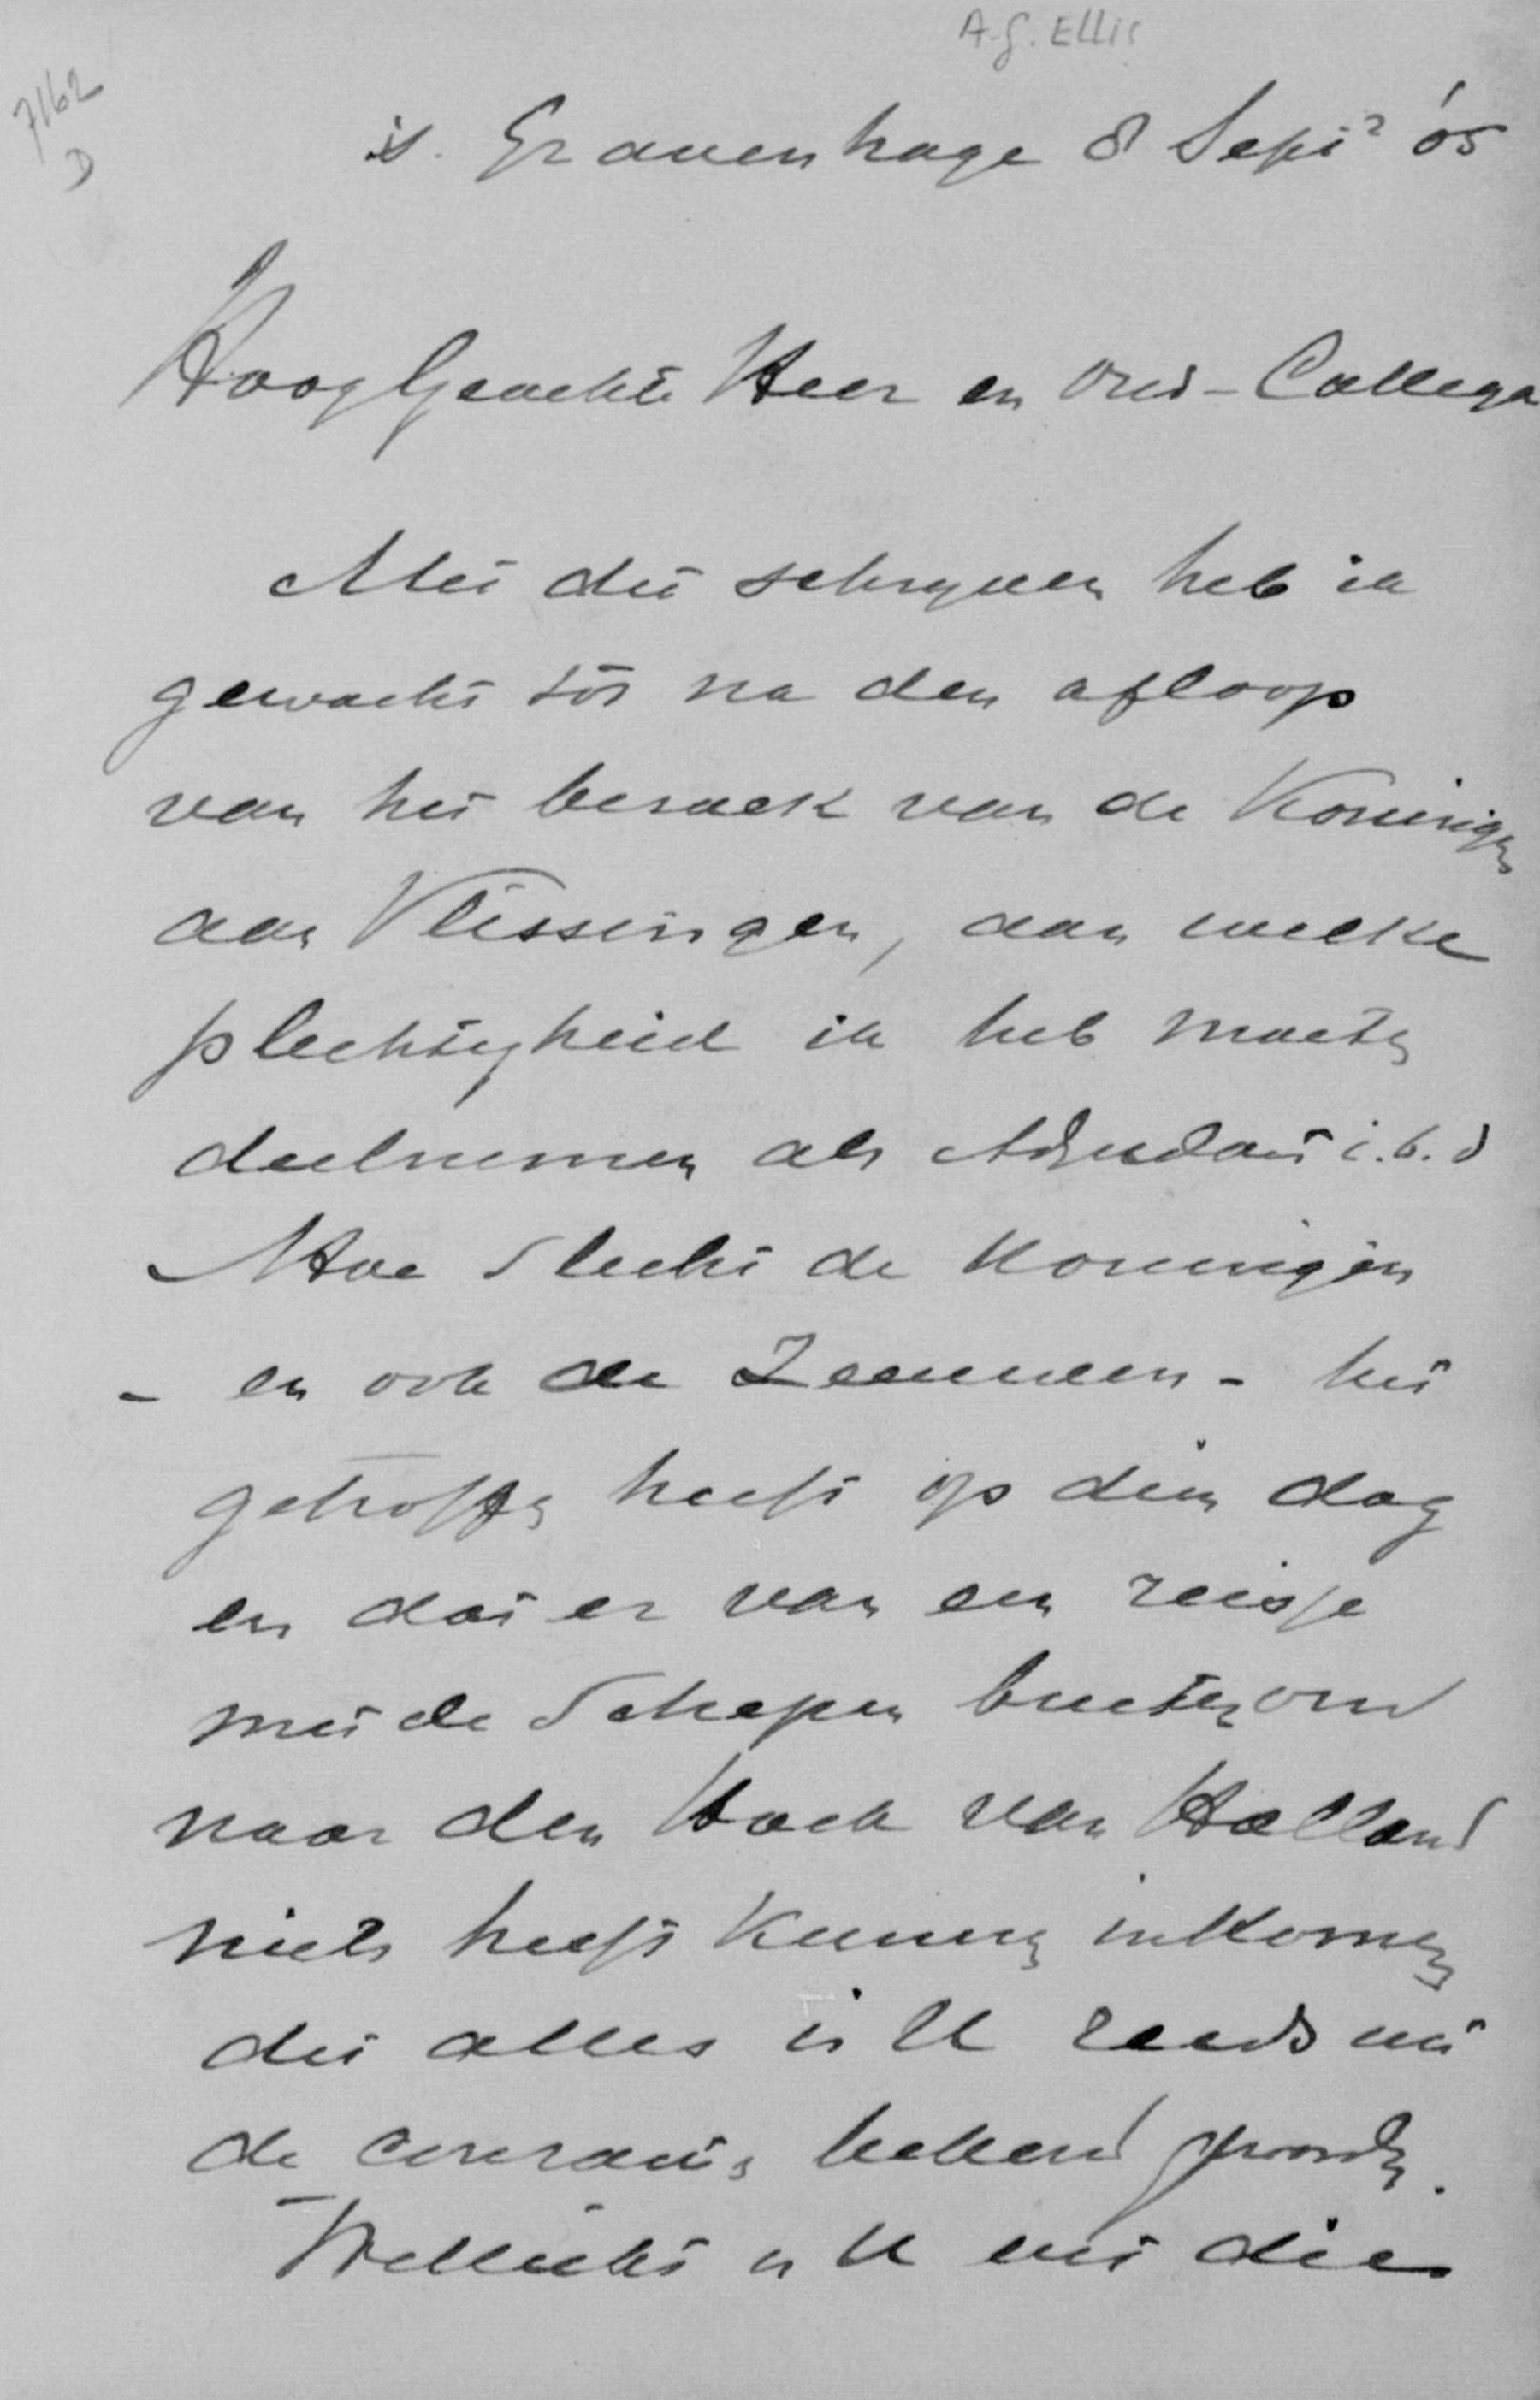 A.G. Ellis
7162
D
's Gravenhage 8 Sept 05
HoogGeachte Heer en Oud-Collega
Met dit schrijven heb ik
gewacht tot na den afloop
van het bezoek van de Koningin
aan Vlissingen, aan welke
plechtigheid ik heb moeten
deelnemen als Adjudant i.b.d
Hoe slecht de Koningin
- en ook de Zeeuwen - het
getroffen heeft op dien dag
en dat er van een reisje
met de Schepen buitenom
naar den Hoek van Holland
niets heeft kunnen inkomen
dit alles is U reeds uit
de couranten bekend geworden.
Wellicht is U uit die